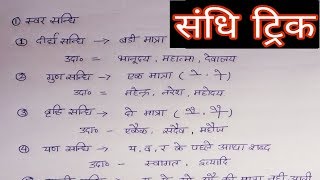 संधि ट्रिक
① स्वर सन्धि
① दीर्घ सन्धि → बडी मात्रा
उदा० = भानूदय, महात्मा, देवालय
② गुण सन्धि → एक मात्रा ( े , ो )
उदा० = महेन्द्र, नरेश, महोदय
③ वृद्धि सन्धि → दो मात्रा ( ै , ौ )
उदा० - एकैक, सदैव, महौज
④ यण सन्धि → य, व, र के पहले आधा शब्द
उदा० - स्वागत, इत्यादि